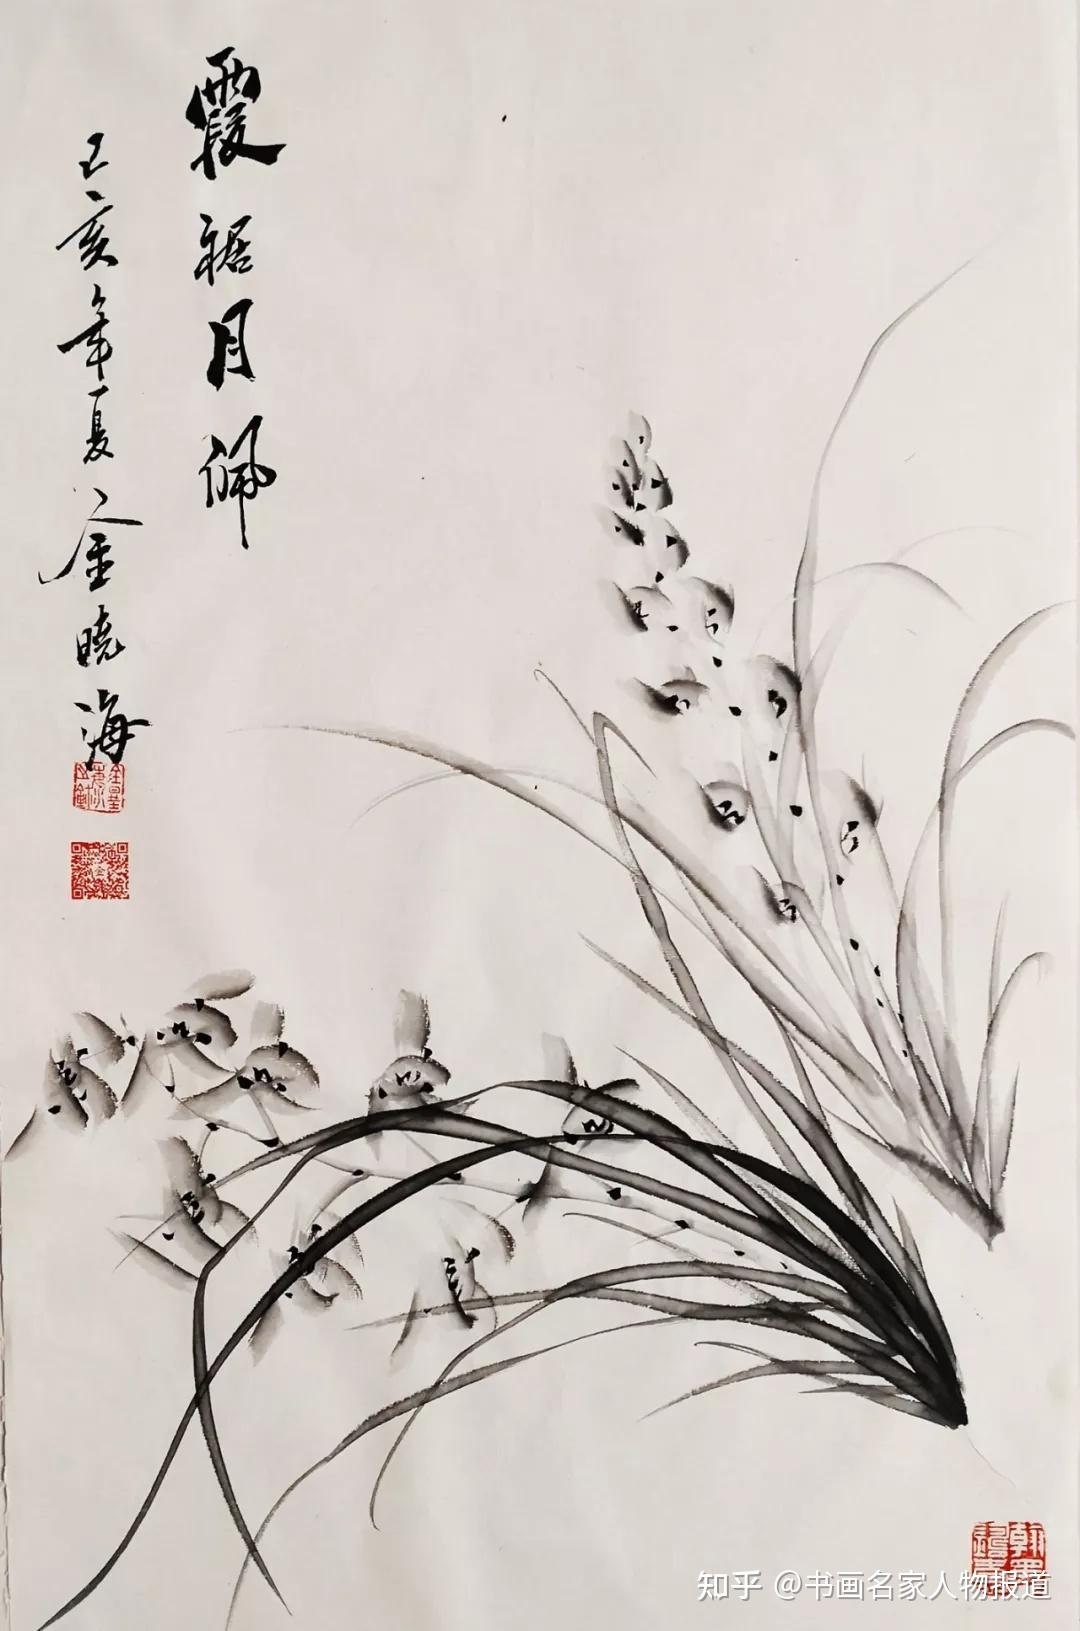 霞裾月佩
己亥年夏金晓海
知乎 @书画名家人物报道